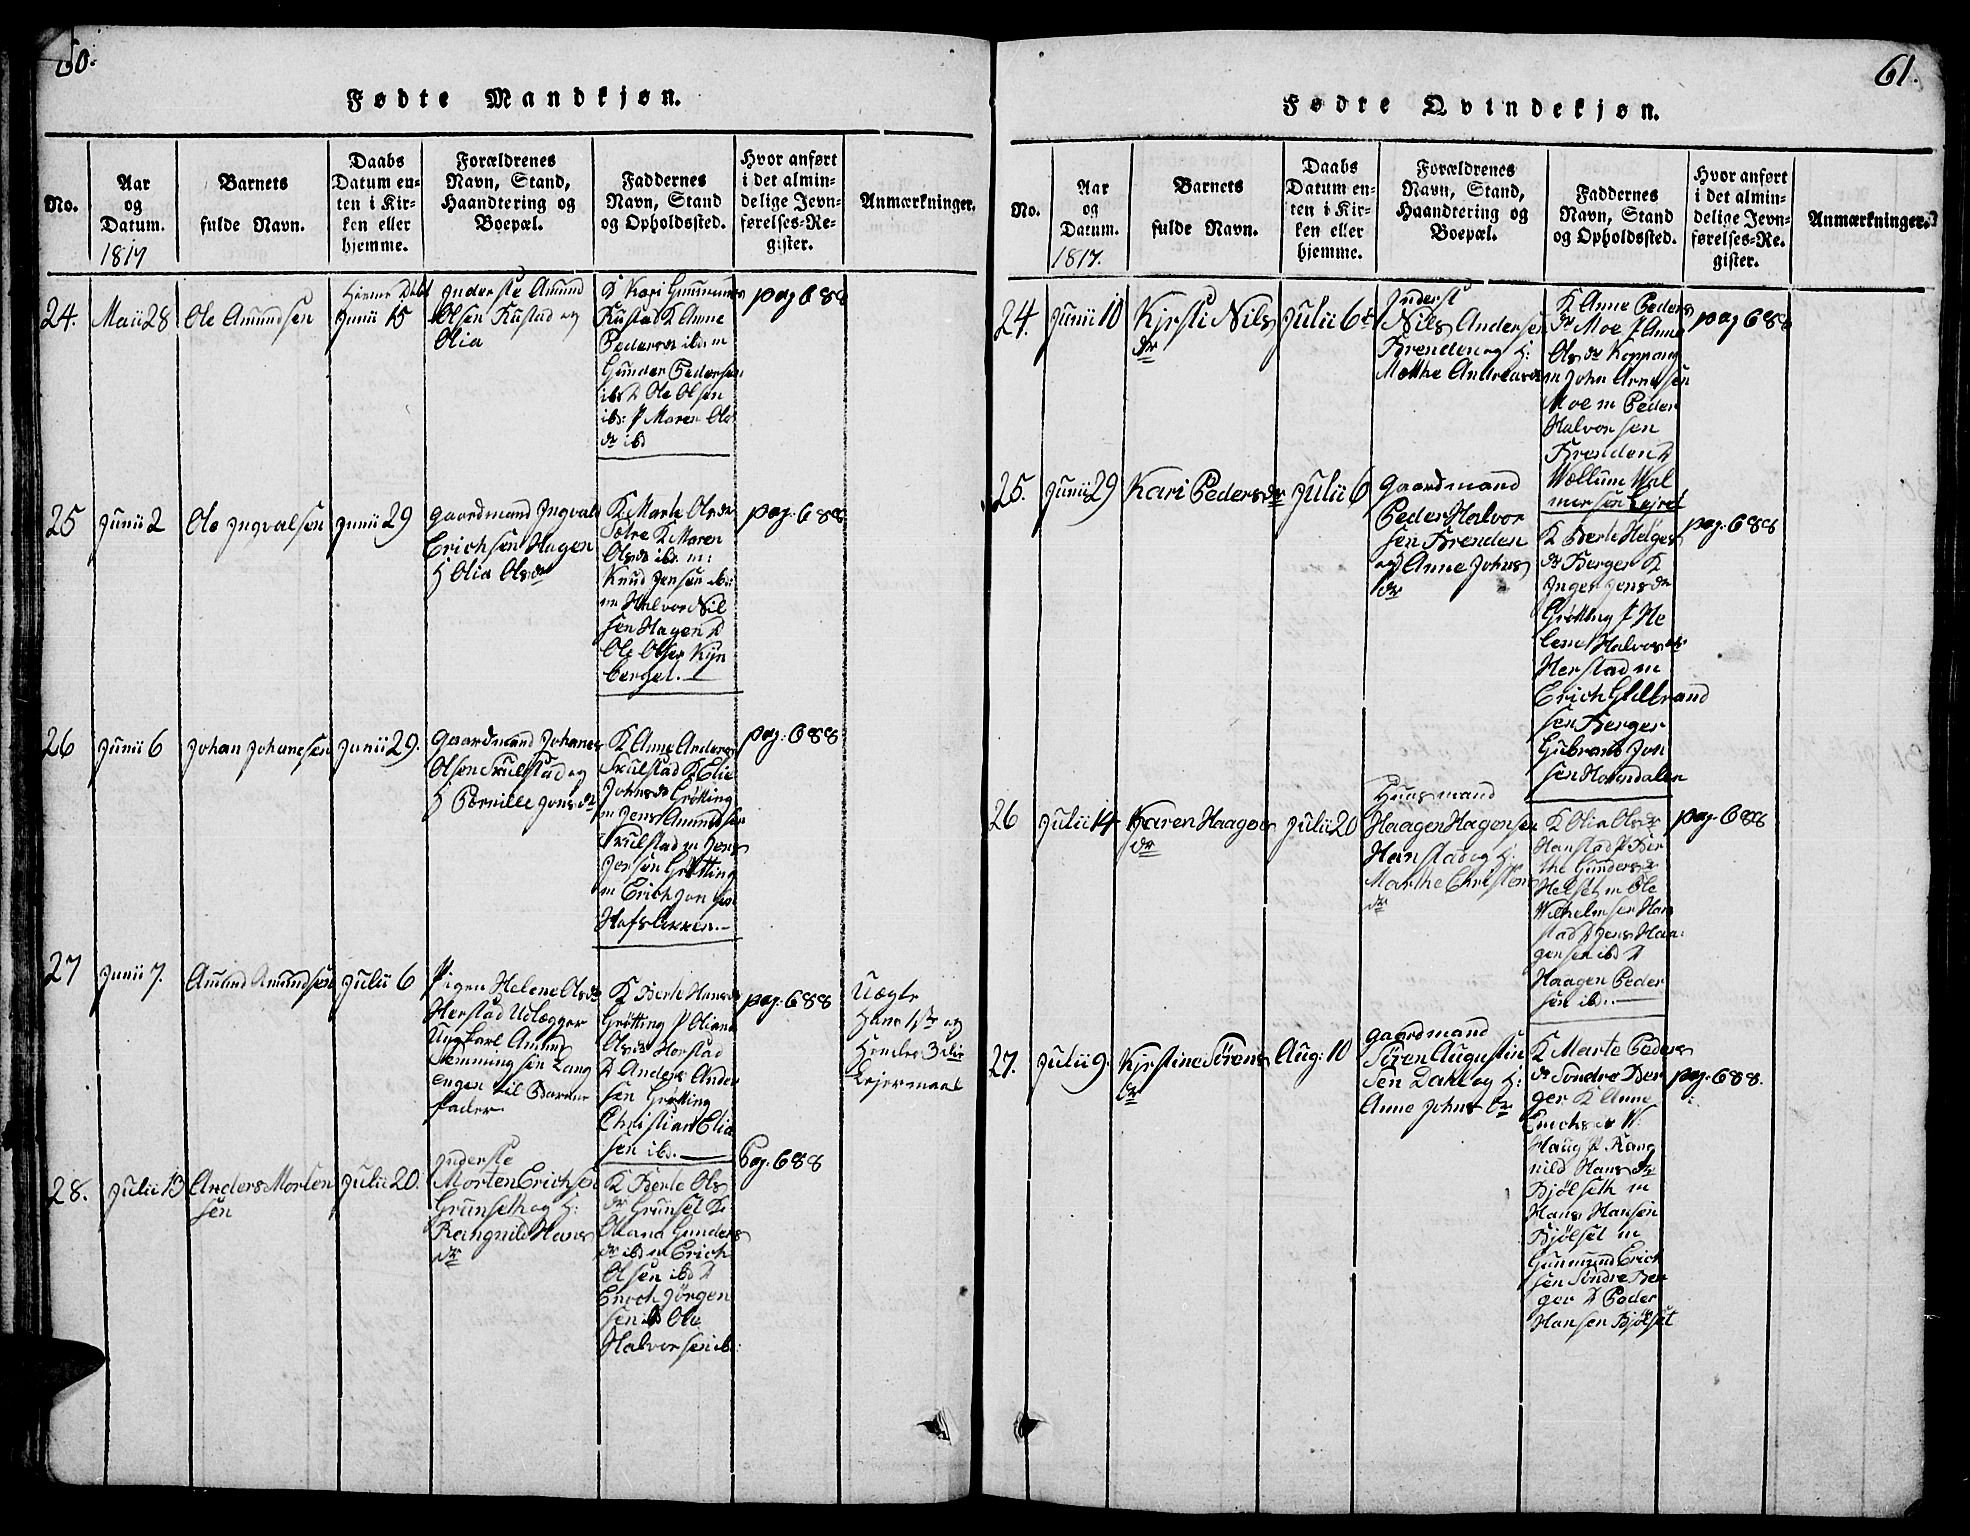 60.
Fødte Mandkjøn.
No.
Aar
og
Datum.
1817
Barnets
fulde Navn.
Daabs
Datum en-
ten i Kir-
ken eller
hjemme.
Forældrenes
Navn, Stand,
Haandtering og
Boepæl.
Faddernes
Navn, Stand
og Opholdssted.
Hvor anført
i det almin-
delige Jevn-
førelses-Re-
gister.
Anmærkninger.
24.
Maii 28
Ole Amundsen
Hiemme Døbt
Junii 15
Inderste Amund
Olsen Rustad og
Olia
K Kari Gunmunds
Rustad K Anne
Pedersdr ibd m
Gunder Pedersen
ibd D Ole Olsen
ibd: P Maren Ols
dr ibd
pag 688
25
Junii 2
Ole Ingvalsen
Junii 29
Gaardmand Ingvald
Erichsen Hagen
H Olia Olsdr
K Marte Olsdr
Sotre K Maren
Olsdr ibd m:
Knud Jensen ibd:
m Halvor Nil
sen Hagen D
Ole Olsen Kyn
berget.
pag: 688
26
Junii 6
Johan Johanesen
Junii 29.
Gaardmand Johanes
Olsen Skulstad og
H Pernille Jonsdr
K Anne Anders
Skulstad K Elie
Johnsdr Grøtting
m Jens Amundsen
Skulstad m Jens
Jensen Grøtting
m Erich Jon sen
Hafslökken.
pag: 688
27
Junii 7.
Amund Amundsen
Julii 6
Pigen Helene Olsdr
Herstad Udlægger
Ungkarl Amund
Semmingsen Lang
engen til Barne
fader
K Berte Hansdr
Grøtting P Oliana
Olsdr Herstad
D Anders Ander
sen Grøtting
Christian Elia
sen ibd.
pag: 688
Uægte
Hans 1ste og
Hendes 3die
Lejermaal
28.
Julii 13
Anders Morten
sen
Julii 20.
Inderste
Morten Erichsen
Grunseth og H:
Rangnild Hans
dr
K Berte Ols
dr Grunset K
Oliana Gunders
dr ibd m Erich
Olsen ibd D
Enoch Jørgen
sen ibd Ole
Halvorsen ibd:
Pag: 688
61.
Fødre Qvindekjøn.
No.
Aar
og
Datum.
1817.
Barnets
fulde Navn.
Daabs
Datum en-
ten i Kir-
ken eller
hjemme.
Forældrenes
Navn, Stand,
Haandtering og
Boepæl.
Faddernes
Navn, Stand
og Opholdssted.
Hvor anført
i det almin-
delige Jevn-
førelses-Re-
gister.
Anmærkninger.
24.
Junii 10
Kjrsti Nils
dr
Julii 6
Inderst
Nils Andersen
Brenden og H:
Mette Andreasdr
K Anne Peders
dr Moe P Anne
Olsdr Koppang
m John Arnesen
Moe m Peder
Halvorsen
Brenden D
Wællum Wal
mersen Lejret
pag 688
25.
Junii 29
Kari Pedersdr
Julii 6
Gaardmand
Peder Halvor
sen Brenden
og Anne Johns
dr
K Berte Helges
dr Berger K
Inger Jensdr
Grøtting P He
lene Halvorsdr
Herstad m
Erich Gulbrand
sen Berger
Gubrand Jon
sen Horndalen
pag. 688
26
Julii 14
Karen Haagens
dr
Julii 20
Huusmand
Haagen Hagensen
Hanstad og H:
Marthe Christens
dr
K Olia Olsdr
Hanstad P Ber
the Gundersdr
Helset m Ole
Wilhelmsen Han
stad P Jens Haa:
gensen ibd D
Haagen Peder
sen ibd.
pag. 688
27.
Julii 9.
Kjrstine Sörens
dr
Aug: 10
Gaardmand
Sören Augustin
sen Dahl og H:
Anne Johns dr
K Marte Peders
dr Söndre Ber
ger K Anne
Erichsdr W.
Haug P Rang
nild Hansdr
Bjölseth m
Hans Hansen
Bjölset m
Gunmund Erich
sen Söndre Ber
ger D Peder
Hansen Bjölset
pag. 688.